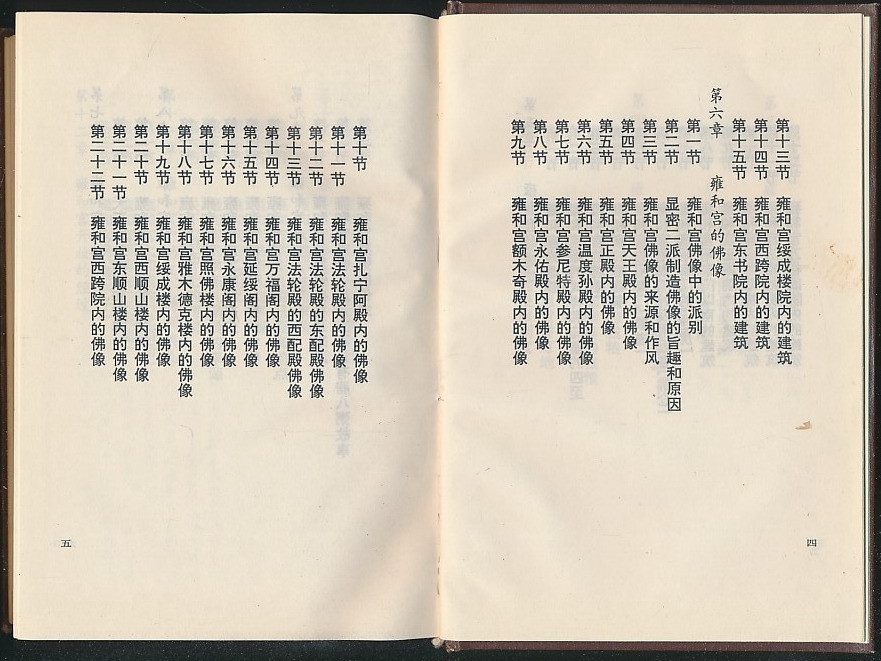 第十三节 雍和宫绥成楼院内的建筑
第十四节 雍和宫西跨院内的建筑
第十五节 雍和宫东书院内的建筑
第六章 雍和宫的佛像
第一节 雍和宫佛像中的派别
第二节 显密二派制造佛像的旨趣和原因
第三节 雍和宫佛像的来源和作风
第四节 雍和宫天王殿内的佛像
第五节 雍和宫正殿内的佛像
第六节 雍和宫温度孙殿内的佛像
第七节 雍和宫参尼特殿内的佛像
第八节 雍和宫永佑殿内的佛像
第九节 雍和宫额木奇殿内的佛像
四
第十节 雍和宫扎宁阿殿内的佛像
第十一节 雍和宫法轮殿内的佛像
第十二节 雍和宫法轮殿的东配殿佛像
第十三节 雍和宫法轮殿的西配殿佛像
第十四节 雍和宫万福阁内的佛像
第十五节 雍和宫延绥阁内的佛像
第十六节 雍和宫永康阁内的佛像
第十七节 雍和宫照佛楼内的佛像
第十八节 雍和宫雅木德克楼内的佛像
第十九节 雍和宫绥成楼内的佛像
第二十节 雍和宫西顺山楼内的佛像
第二十一节 雍和宫东顺山楼内的佛像
第二十二节 雍和宫西跨院内的佛像
五